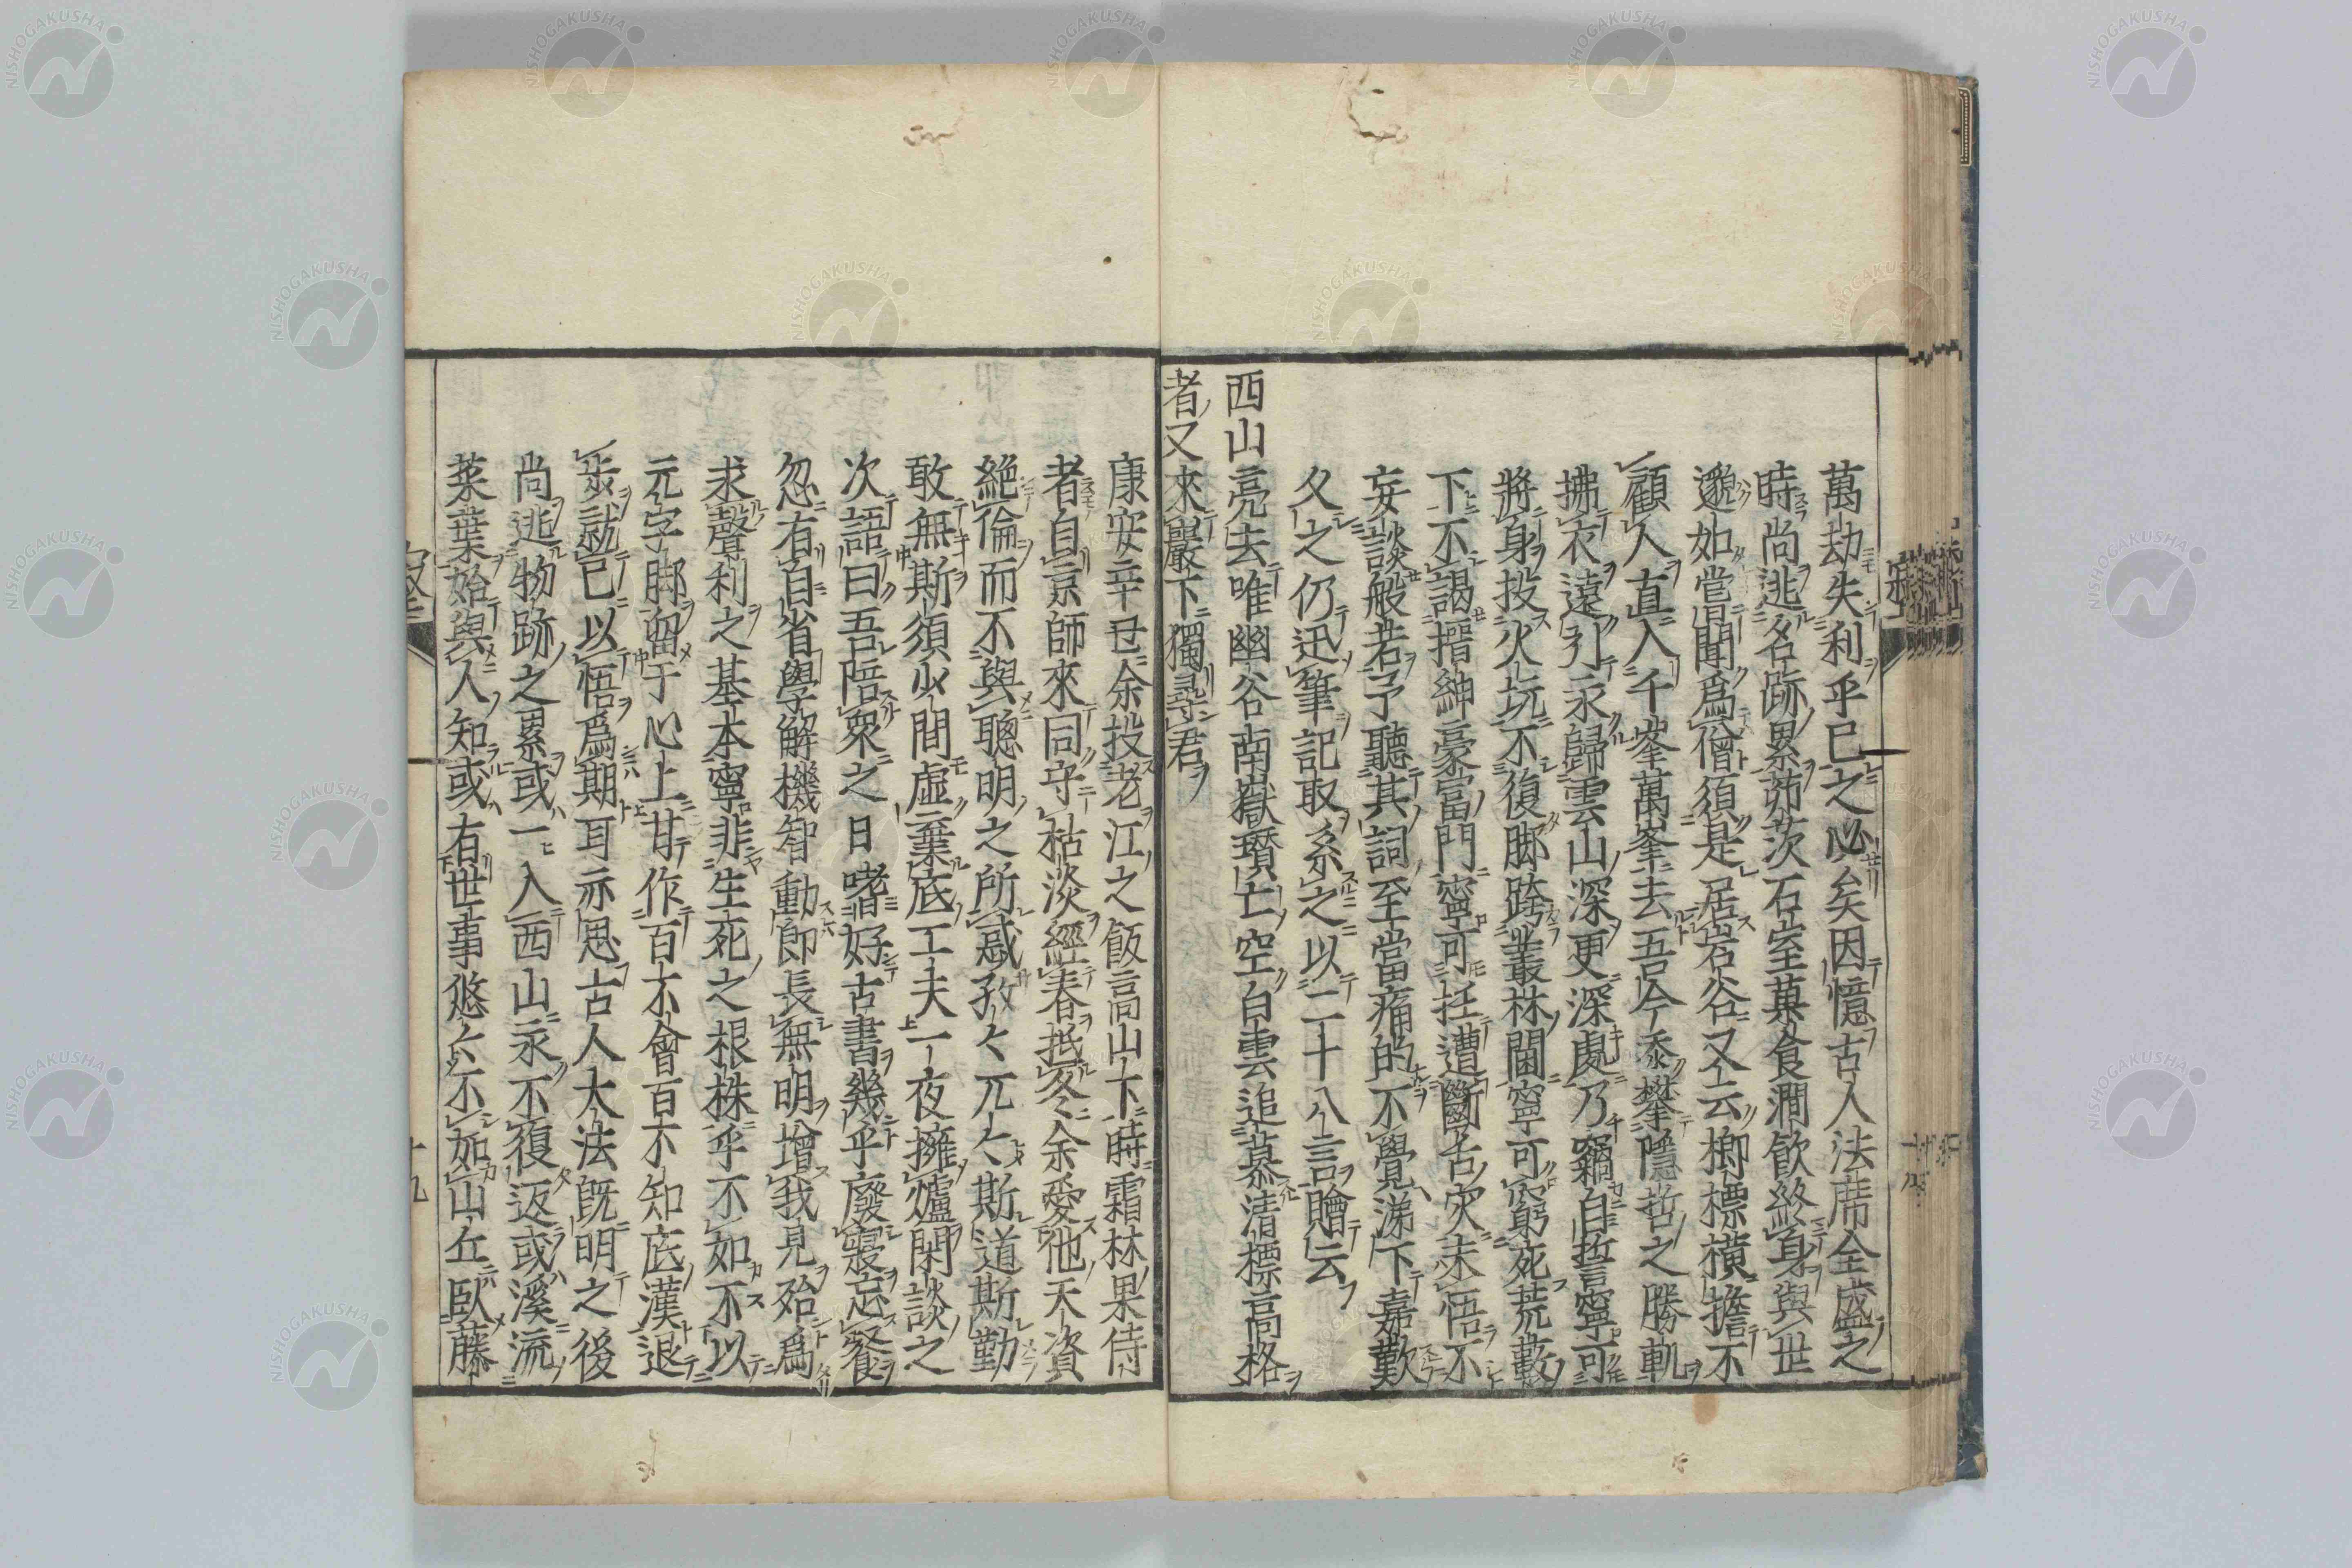 萬劫失利乎已之必矣因憶古人法席全盛之
時尚逃名跡累茆茨石室菓食澗飲終身與世
邈如嘗聞爲僧須是居岩谷又云榔標横擔不
顧人直入千峯萬峯去吾今忝攀隱哲之勝軌
拂衣遠引永歸雲山深更深處乃竊自誓寧可
將身投火坑不復脚跨叢林閫寧可窮死荒藪
下不謁搢紳豪富門寧可抂遭斷舌灾未悟不
妄談般若予聽其詞至當痛的不覺涕下嘉歎
久之仍迅筆記取系之以二十八言贈云
西山亮去唯幽谷南嶽瓚亡空白雲追慕清標高格
者又來巖下獨尋君
康安辛丑余投老江之飯高山下時霜林果侍
者自京師來同守枯淡經春抵冬余愛他天資
絶倫而不與聰明之所惑孜々兀々斯道斯勤
敢無斯須少間虚棄底工夫一夜擁爐閑談之
次語曰吾陪衆之日嗜好古書幾乎廢寢忘餐
忽有自省學解機智動即長無明增我見殆爲
求聲利之基本寧非生死之根株乎不如不以
元字脚留于心上甘作百不會百不知底漢退
步就已以悟爲期耳亦思古人大法既明之後
尚逃物跡之累或一入西山永不復返或溪流
菜葉始與人知或有世事悠々不如山丘臥藤
十九
NISHOGAKUSHA